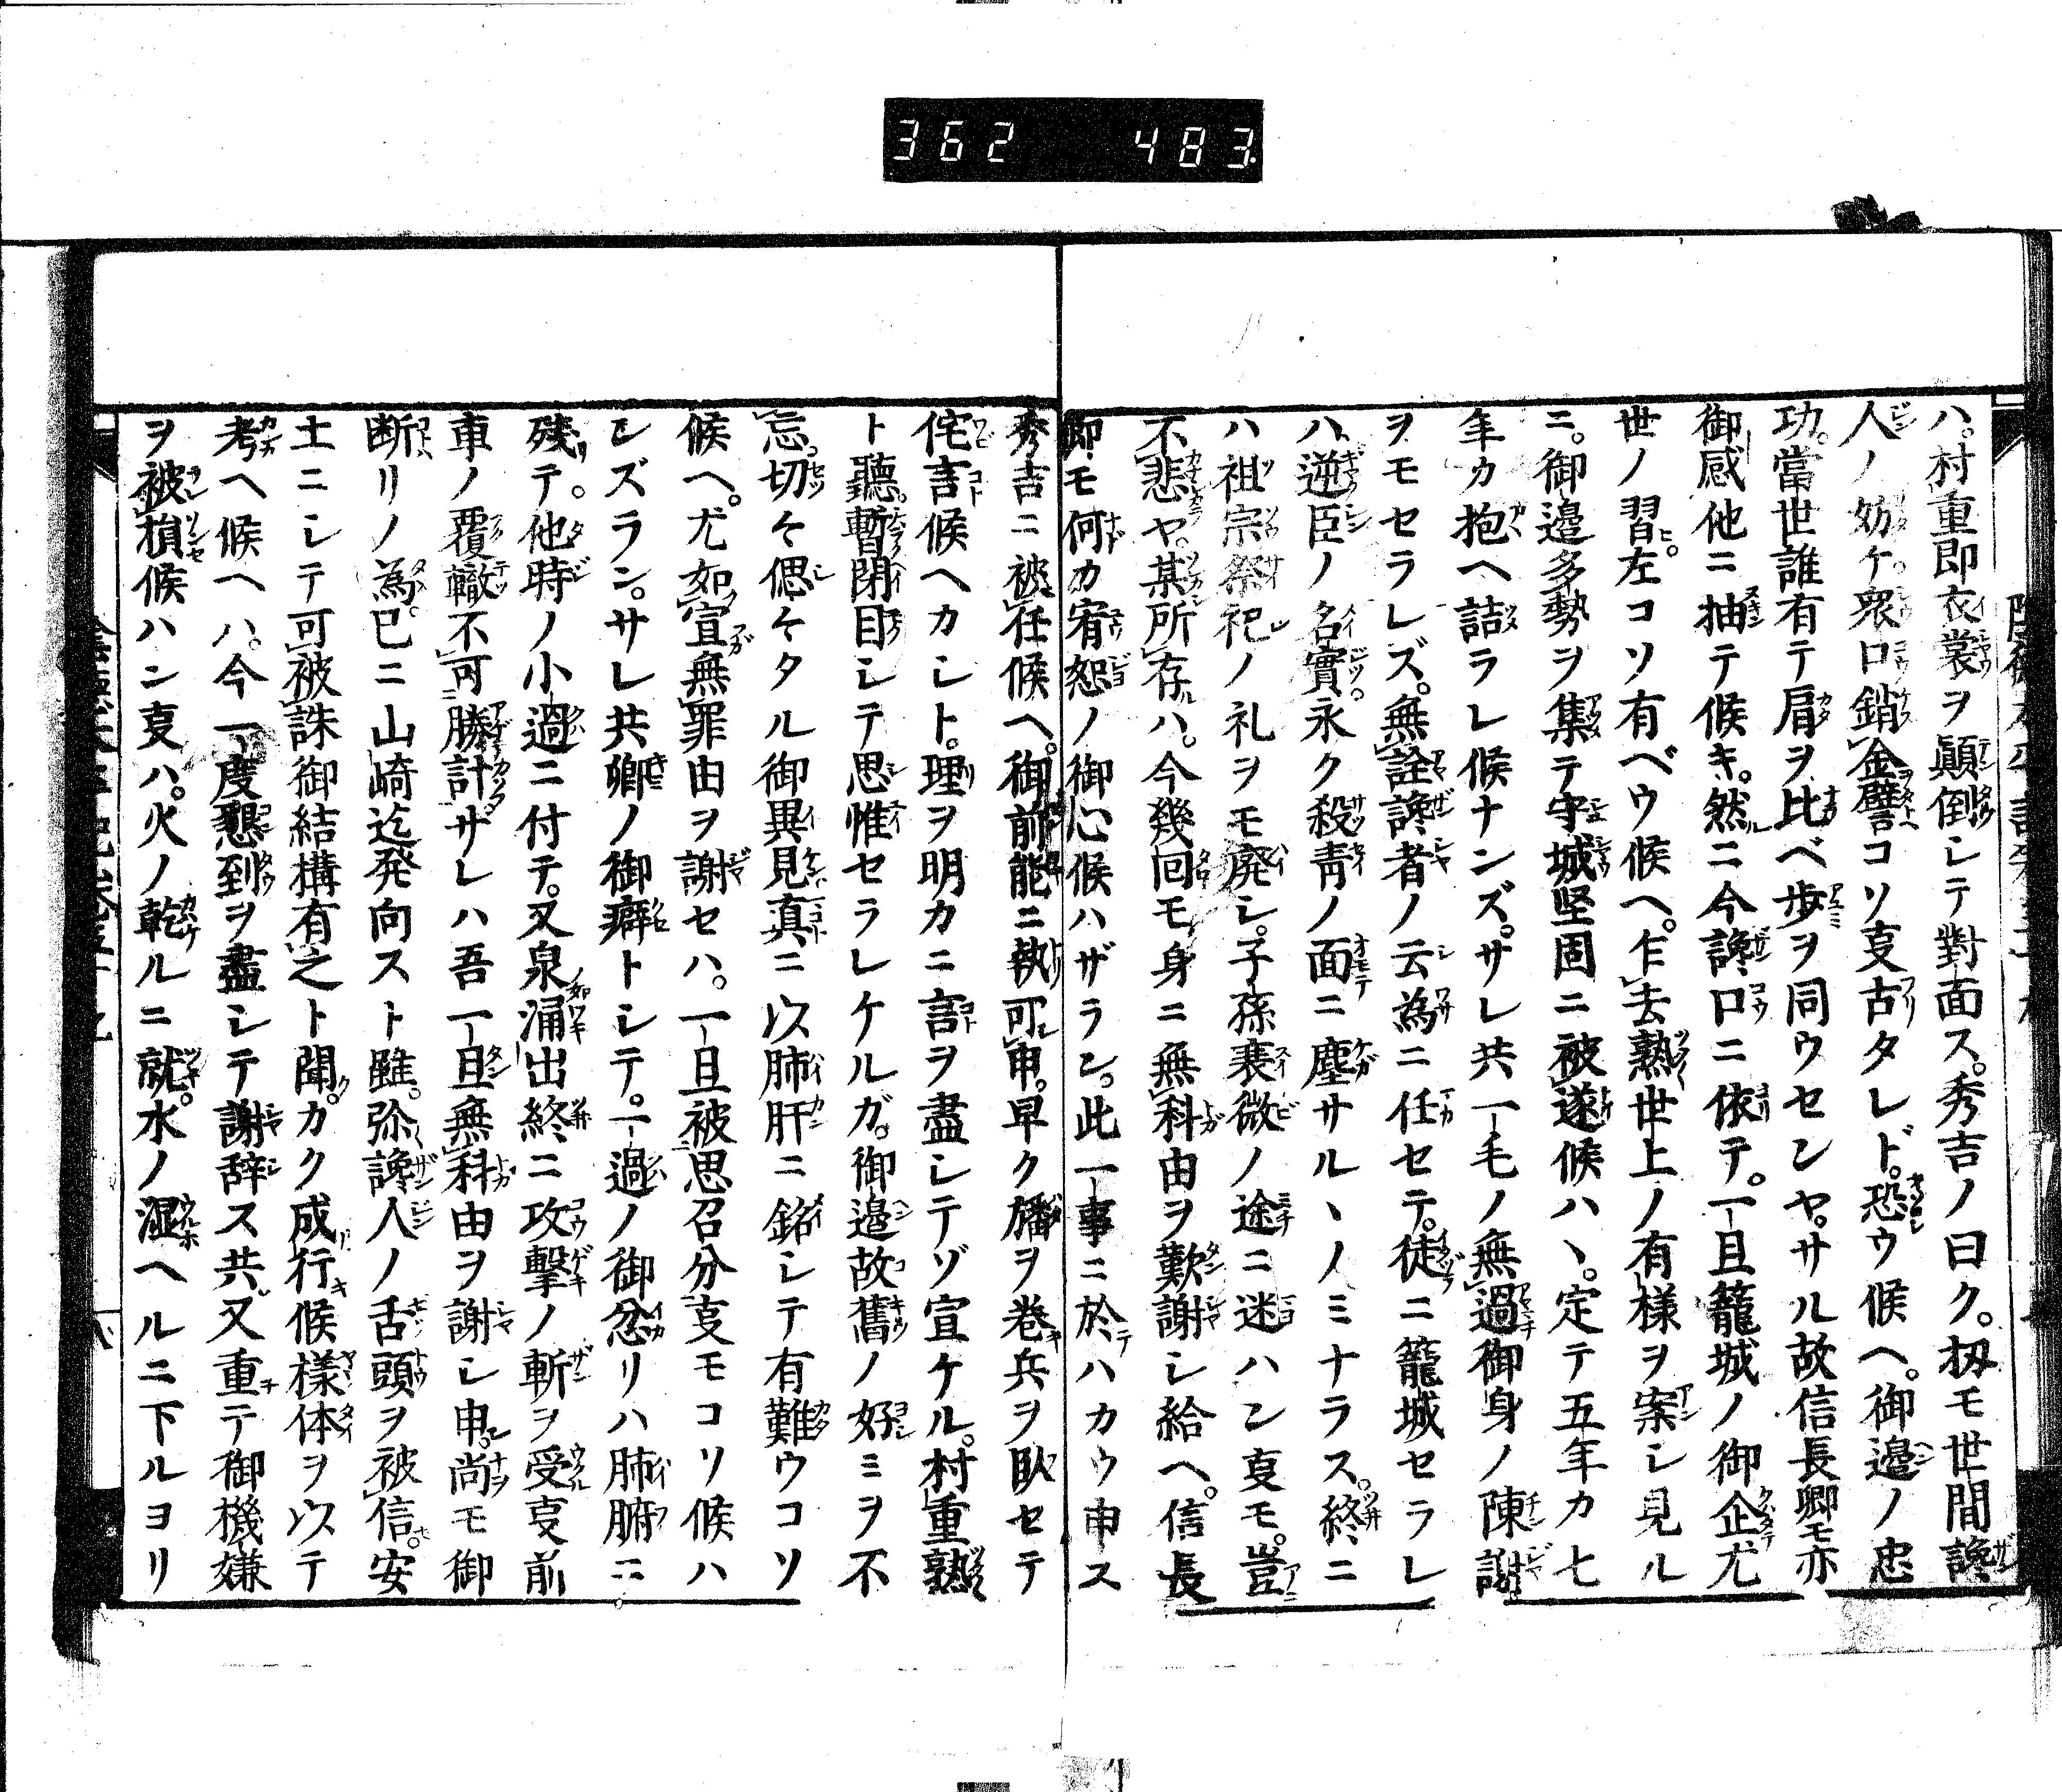 362 483
ハ。村重即衣裳ヲ顛倒シテ對面ス。秀吉ノ曰ク。扨モ世間讒
人ノ妨ケ。衆口銷金譬コソ叓古タレド。恐ウ候ヘ。御邉ノ忠
功。當世誰有テ肩ヲ比ベ歩ヲ同ウセンヤ。サル故信長卿モ亦
御感他ニ抽テ候キ。然ニ今讒口ニ依テ。一旦籠城ノ御企尤
世ノ習。左コソ有ベウ候ヘ。乍去熟世上ノ有様ヲ案シ見ル
ニ。御邉多勢ヲ集テ守城堅固ニ被遂候ハヽ。定テ五年カ七
年カ抱ヘ詰ラレ候ナンズ。サレ共一毛ノ無過御身ノ陳謝
ヲモセラレズ。無詮讒者ノ云為ニ任セテ。徒ニ籠城セラレ
ハ、逆臣ノ名實。永ク殺青ノ面ニ塵サルヽノミナラス。終ニ
ハ祖宗祭祀ノ礼ヲモ廃シ。子孫衰微ノ途ニ迷ハン叓モ。豈
不悲ヤ。某所存ハ。今幾回モ身ニ無科由ヲ歎謝シ給ヘ。信長
即モ何カ宥恕ノ御心候ハザラン。此一事ニ於テハカウ申ス
秀吉ニ被任候ヘ。御前能ニ執可申。早ク旛ヲ巻兵ヲ㪇セテ
侘言候ヘカシト。理ヲ明カニ言ヲ盡シテゾ宣ケル。村重熟
ト聽。暫閉目シテ思惟セラレケルガ。御邉故舊ノ好ミヲ不
忘。切々偲々タル御異見真ニ以肺肝ニ銘シテ有難ウコソ
候ヘ。尤如宣無罪由ヲ謝セハ。一旦被思召分叓モコソ候ハ
ンズラン。サレ共卿ノ御癖トシテ。一過ノ御忿リハ肺腑ニ
残テ。他時ノ小過ニ付テ。又泉涌出終ニ攻撃ノ斬ヲ受叓前
車ノ覆轍不可勝計ザレハ吾一旦無科由ヲ謝シ申。尚モ御
断リノ為。巳ニ山崎迄発向スト雖。弥讒人ノ舌頭ヲ被信。安
土ニシテ可被誅御結構有之ト聞。カク成行候樣体ヲ以テ
考ヘ候ヘハ。今一度懇到ヲ盡シテ謝辞ス共又重テ御機嫌
ヲ被損候ハン叓ハ。火ノ乾ルニ就。水ノ湿ヘルニ下ルヨリ